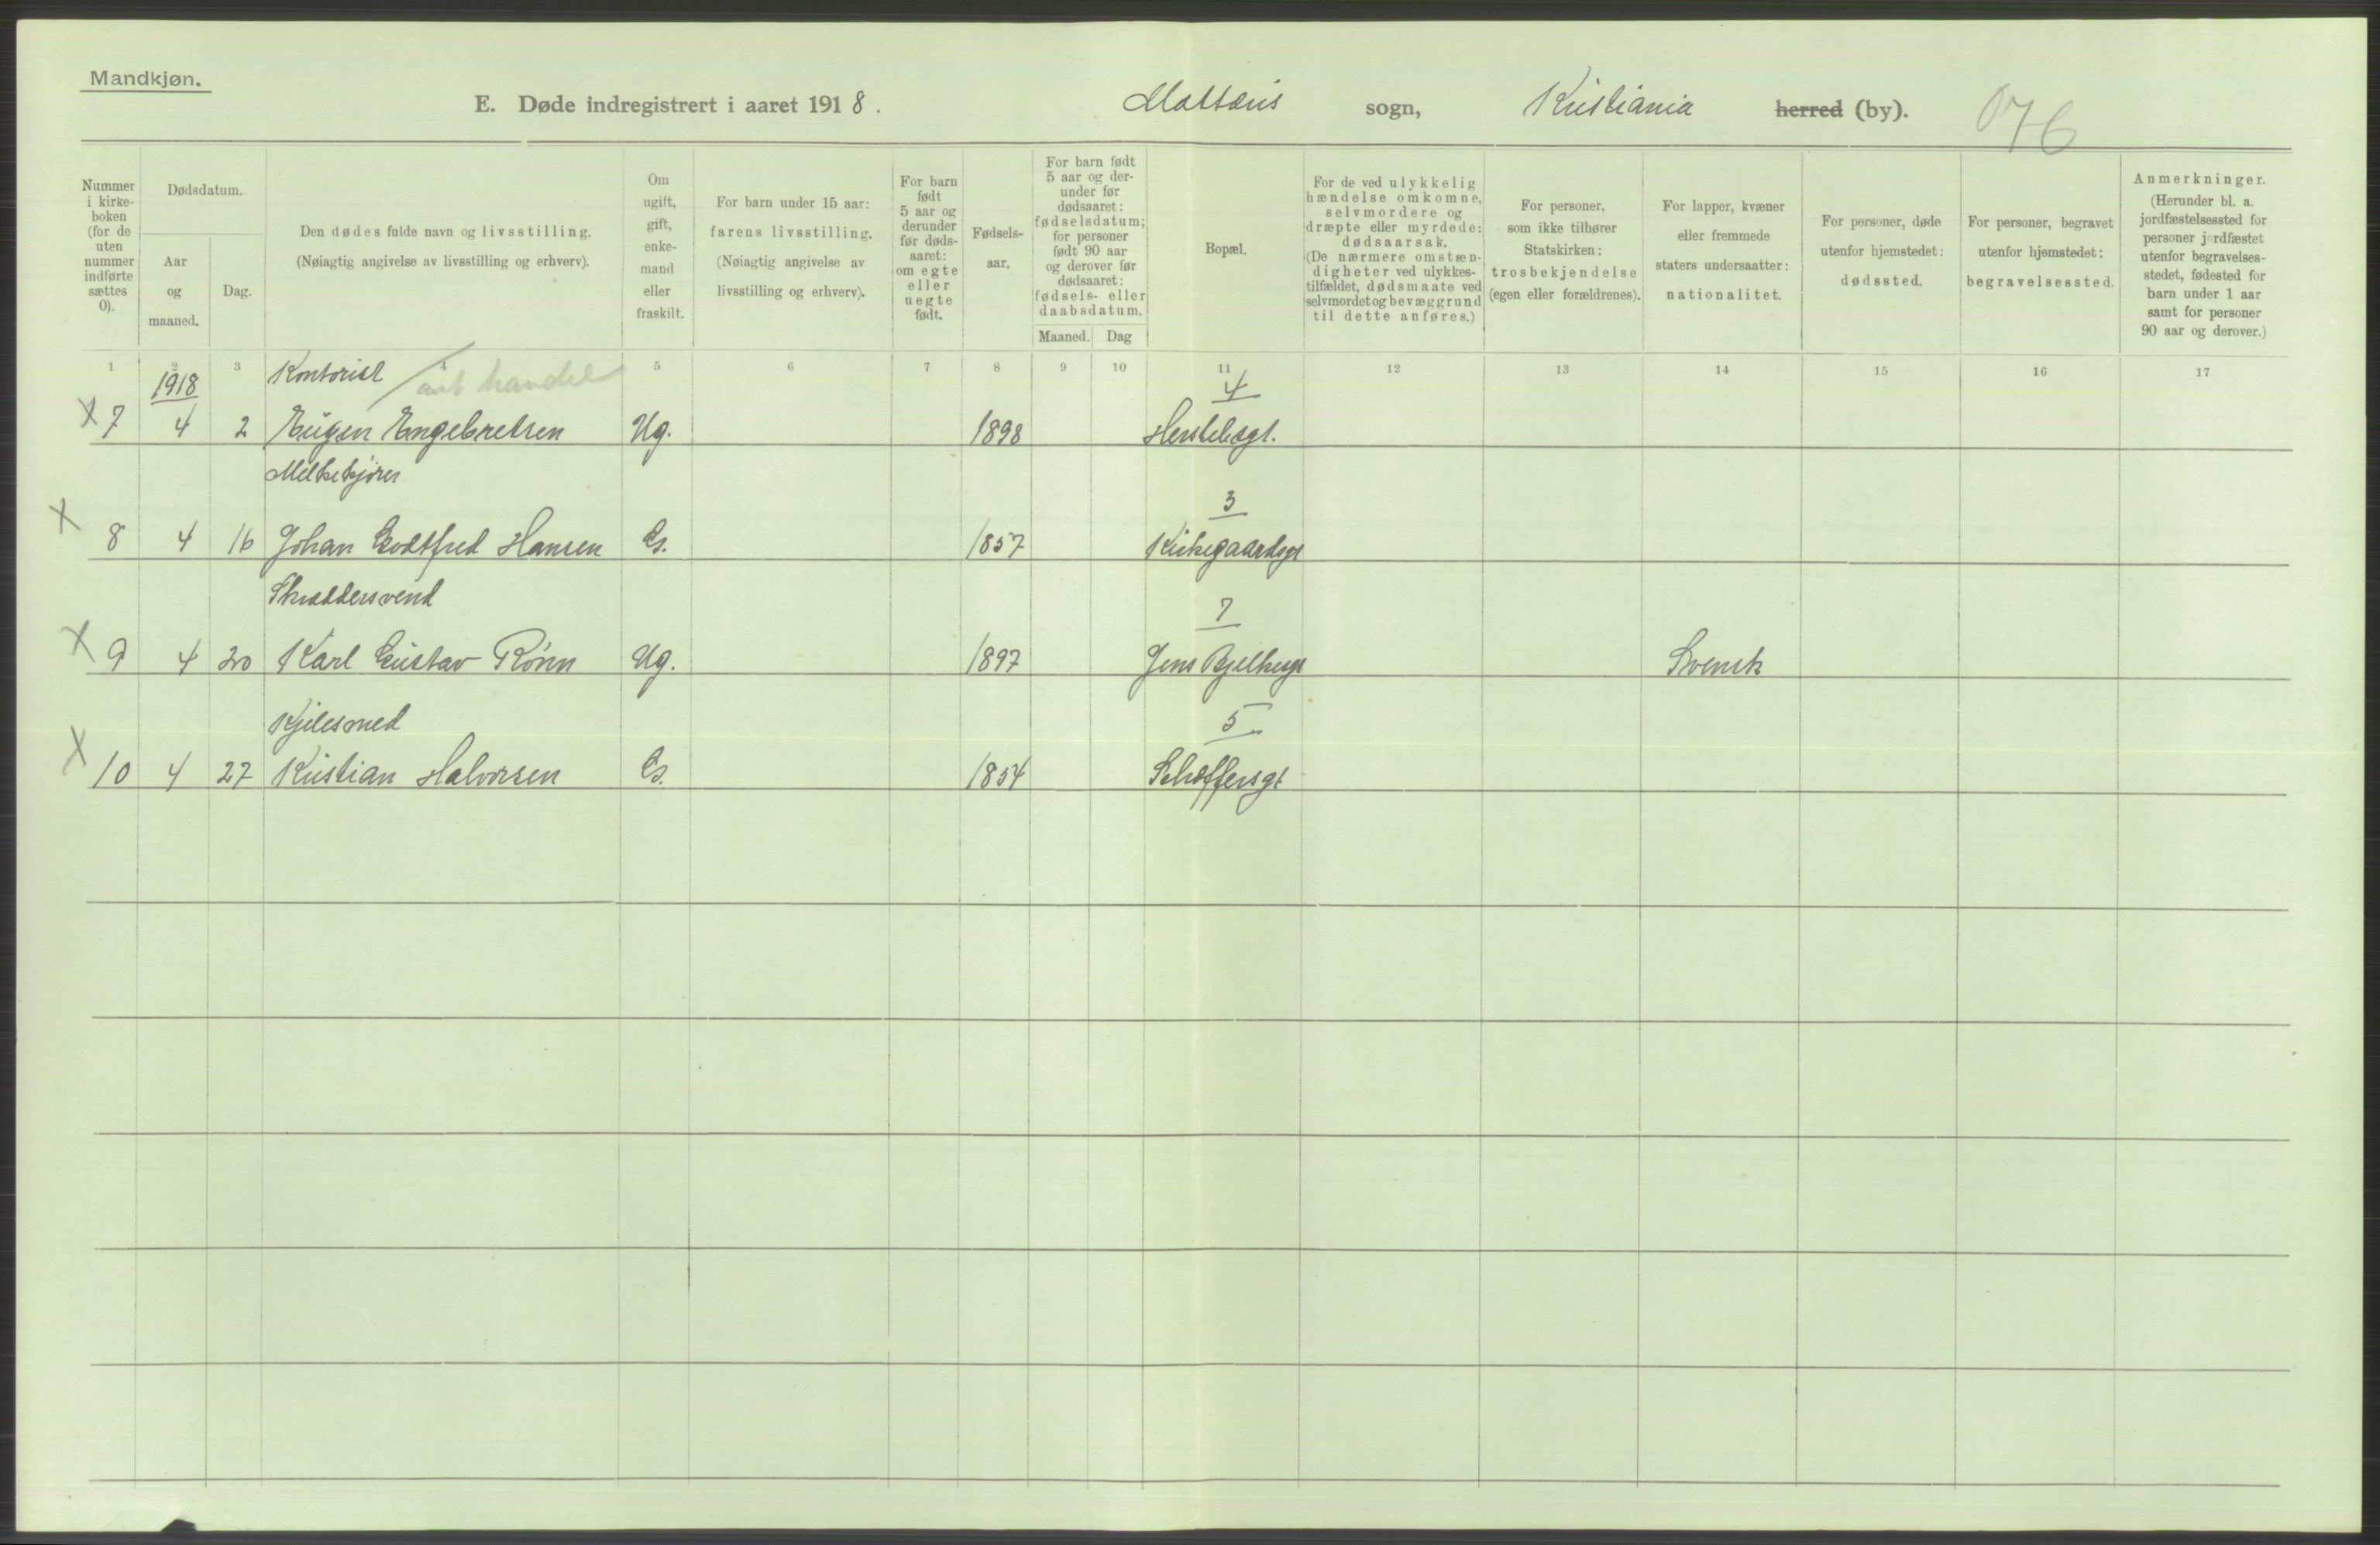 Mandkjøn.
E. Døde indregistrert i aaret 1918. Mattæus sogn, Kristiania herred (by). 076
Nummer i kirke- boken (for de uten nummer indførte sættes 0).
Dødsdatum.
Aar og maaned.
Dag.
Den dødes fulde navn og livsstilling.
(Nøiagtig angivelse av livsstilling og erhverv).
Om ugift, gift, enke- mand eller fraskilt.
For barn under 15 aar: farens livsstilling.
(Nøiagtig angivelse av livsstilling og erhverv).
For barn født 5 aar og derunder før døds- aaret: om egte eller uegte født.
Fødsels- aar.
For barn født 5 aar og der- under før dødsaaret: fødselsdatum; for personer født 90 aar og derover før dødsaaret: fødsels- eller daabsdatum.
Maaned. Dag
Bopæl.
For de ved ulykkelig hændelse omkomne, selvmordere og dræpte eller myrdede: dødsaarsak.
(De nærmere omstæn- digheter ved ulykkes- tilfældet, dødsmaate ved selvmordet og bevæggrund til dette anføres.)
For personer, som ikke tilhører Statskirken: trosbekjendelse (egen eller forældrenes).
For lapper, kvæner eller fremmede staters undersaatter: nationalitet.
For personer, døde utenfor hjemstedet: dødssted.
For personer, begravet utenfor hjemstedet: begravelsessted.
Anmerkninger.
(Herunder bl. a. jordfæstelsessted for personer jordfæstet utenfor begravelses- stedet, fødested for barn under 1 aar samt for personer 90 aar og derover.)
1 2 3 4 5 6 7 8 9 10 11 12 13 14 15 16 17
1918 Kontorist handel 4
x 7 4 2 Eugen Engebretsen Ug. 1898 Herslebsgt.
Melkekjører 3
x 8 4 16 Johan Godtfred Hansen G. 1857 Kirkegaardsgt
Skræddersvend 7
x 9 4 20 Karl Gustav Rönn Ug. 1897 Jens Bjelkesgt Svensk
Kjelesmed 5
x 10 4 27 Kristian Halvorsen G. 1854 Schæffersgt